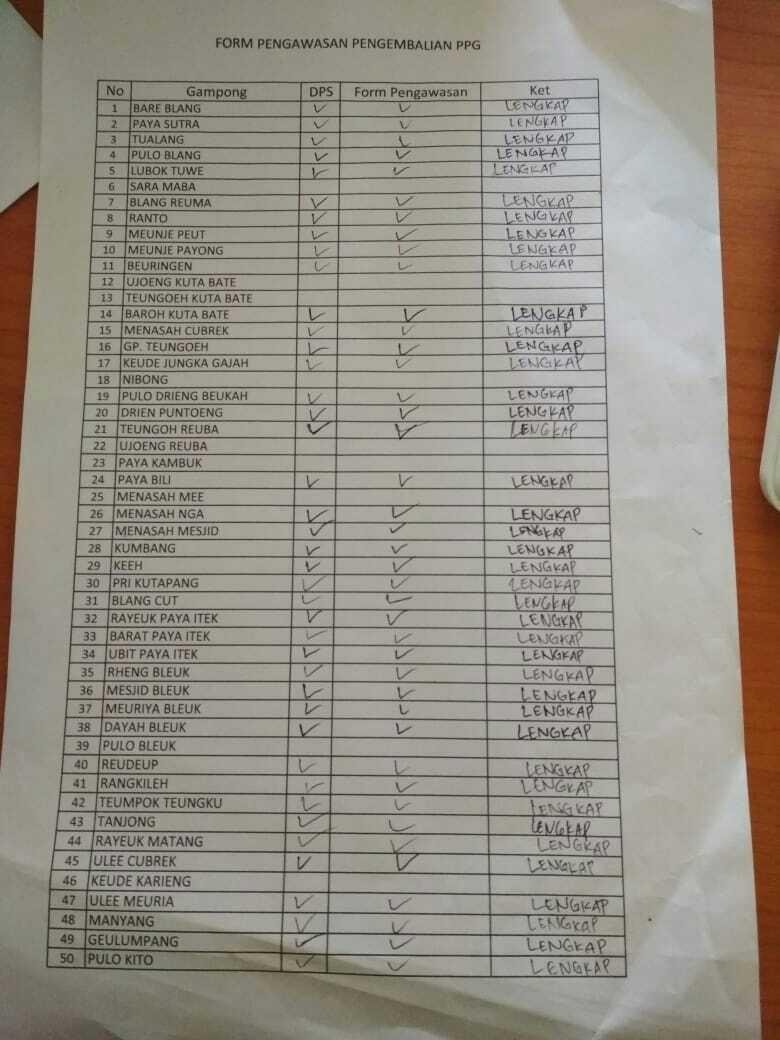 FORM PENGAWASAN PENGEMBALIAN PPG
No Gampong DPS Form Pengawasan Ket
1 BARE BLANG ✓ ✓ LENGKAP
2 PAYA SUTRA ✓ ✓ LENGKAP
3 TUALANG ✓ ✓ LENGKAP
4 PULO BLANG ✓ ✓ LENGKAP
5 LUBOK TUWE ✓ ✓ LENGKAP
6 SARA MABA
7 BLANG REUMA ✓ ✓ LENGKAP
8 RANTO ✓ ✓ LENGKAP
9 MEUNJE PEUT ✓ ✓ LENGKAP
10 MEUNJE PAYONG ✓ ✓ LENGKAP
11 BEURINGEN ✓ ✓ LENGKAP
12 UJOENG KUTA BATE
13 TEUNGOEH KUTA BATE
14 BAROH KUTA BATE ✓ ✓ LENGKAP
15 MENASAH CUBREK ✓ ✓ LENGKAP
16 GP. TEUNGOEH ✓ ✓ LENGKAP
17 KEUDE JUNGKA GAJAH ✓ ✓ LENGKAP
18 NIBONG
19 PULO DRIENG BEUKAH ✓ ✓ LENGKAP
20 DRIEN PUNTOENG ✓ ✓ LENGKAP
21 TEUNGOH REUBA ✓ ✓ LENGKAP
22 UJOENG REUBA
23 PAYA KAMBUK
24 PAYA BILI ✓ ✓ LENGKAP
25 MENASAH MEE
26 MENASAH NGA ✓ ✓ LENGKAP
27 MENASAH MESJID ✓ ✓ LENGKAP
28 KUMBANG ✓ ✓ LENGKAP
29 KEEH ✓ ✓ LENGKAP
30 PRI KUTAPANG ✓ ✓ LENGKAP
31 BLANG CUT ✓ ✓ LENGKAP
32 RAYEUK PAYA ITEK ✓ ✓ LENGKAP
33 BARAT PAYA ITEK ✓ ✓ LENGKAP
34 UBIT PAYA ITEK ✓ ✓ LENGKAP
35 RHENG BLEUK ✓ ✓ LENGKAP
36 MESJID BLEUK ✓ ✓ LENGKAP
37 MEURIYA BLEUK ✓ ✓ LENGKAP
38 DAYAH BLEUK ✓ ✓ LENGKAP
39 PULO BLEUK
40 REUDEUP ✓ ✓ LENGKAP
41 RANGKILEH ✓ ✓ LENGKAP
42 TEUMPOK TEUNGKU ✓ ✓ LENGKAP
43 TANJONG ✓ ✓ LENGKAP
44 RAYEUK MATANG ✓ ✓ LENGKAP
45 ULEE CUBREK ✓ ✓ LENGKAP
46 KEUDE KARIENG
47 ULEE MEURIA ✓ ✓ LENGKAP
48 MANYANG ✓ ✓ LENGKAP
49 GEULUMPANG ✓ ✓ LENGKAP
50 PULO KITO ✓ ✓ LENGKAP